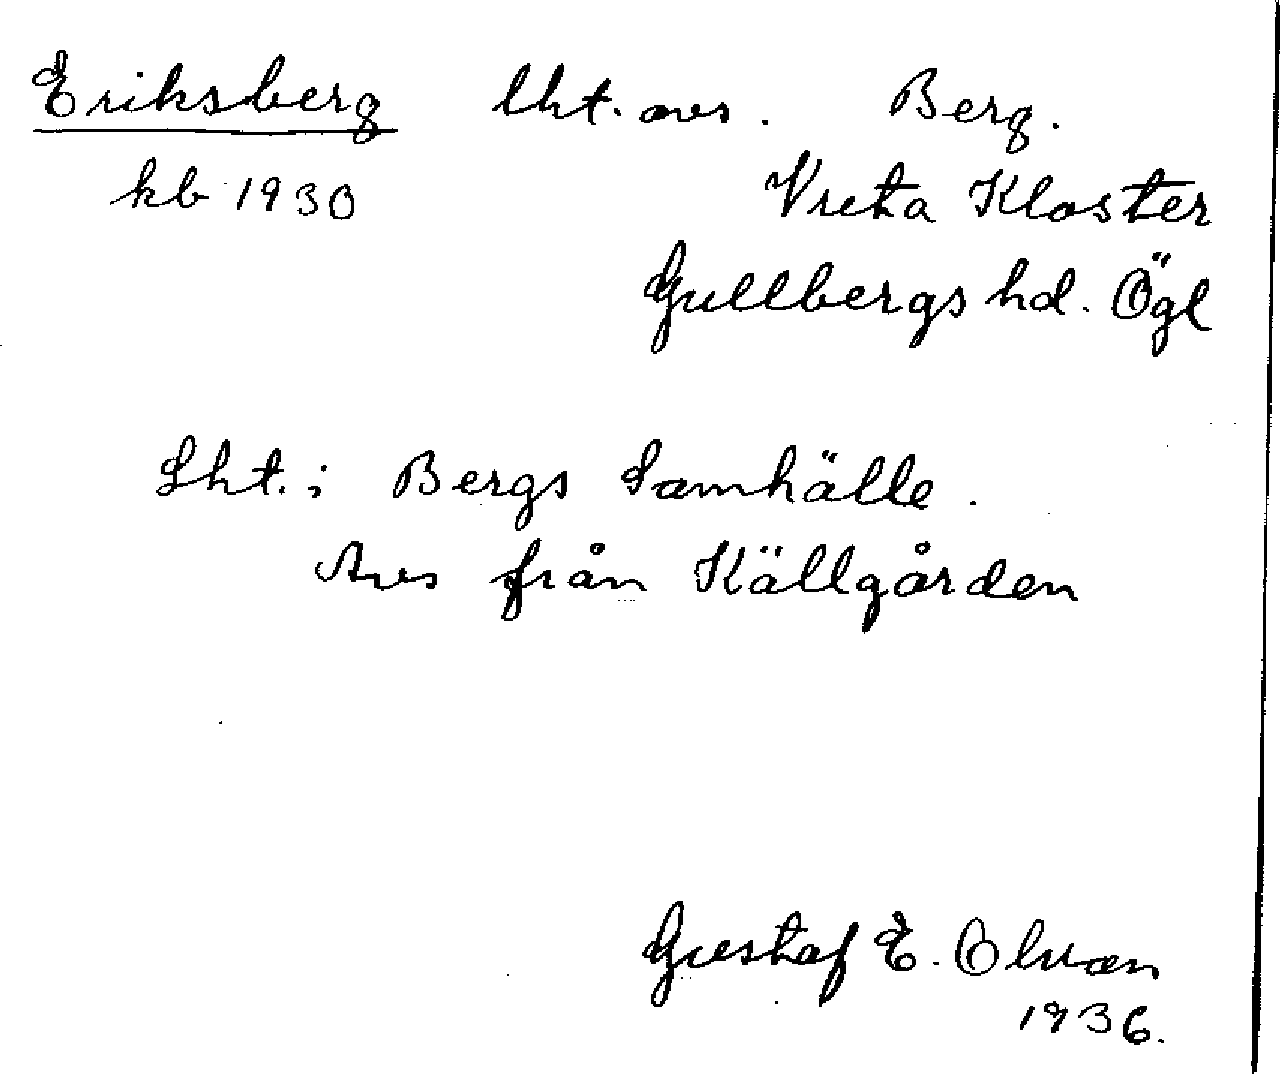 Eriksberg lht. avs. Berg.
kb 1930 Vreta Kloster
Gullbergs hd. Ögl
Lht. i Bergs Samhälle.
Avs från Källgården
Gustaf E. Olvan
1936.